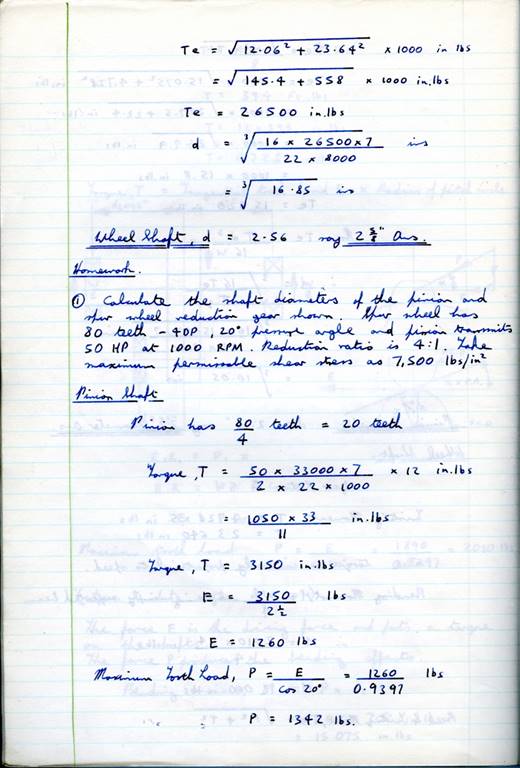 Te = √12.06² + 23.64² × 1000 in lbs
= √145.4 + 558 × 1000 in.lbs
Te = 26500 in.lbs
d = ³√(16 × 26500 × 7 / 22 × 8000) ins
= ³√16.85 ins
Wheel Shaft, d = 2.56 say 2 5/8" Ans.
Homework.
① Calculate the shaft diameters of the pinion and
spur wheel reduction gear shown. Spur wheel has
80 teeth - 4DP, 20° pressure angle and pinion transmits
50 HP at 1000 RPM. Reduction ratio is 4:1. Take
maximum permissable shear stress as 7,500 lbs/in²
Pinion Shaft
Pinion has 80/4 teeth = 20 teeth
Torque, T = 50 × 33000 × 7 / 2 × 22 × 1000 × 12 in.lbs
= 1050 × 33 / 11 in.lbs
Torque, T = 3150 in.lbs
E = 3150 / 2½ lbs
E = 1260 lbs
Maximum Tooth Load, P = E / cos 20° = 1260 / 0.9397 lbs
P = 1342 lbs.